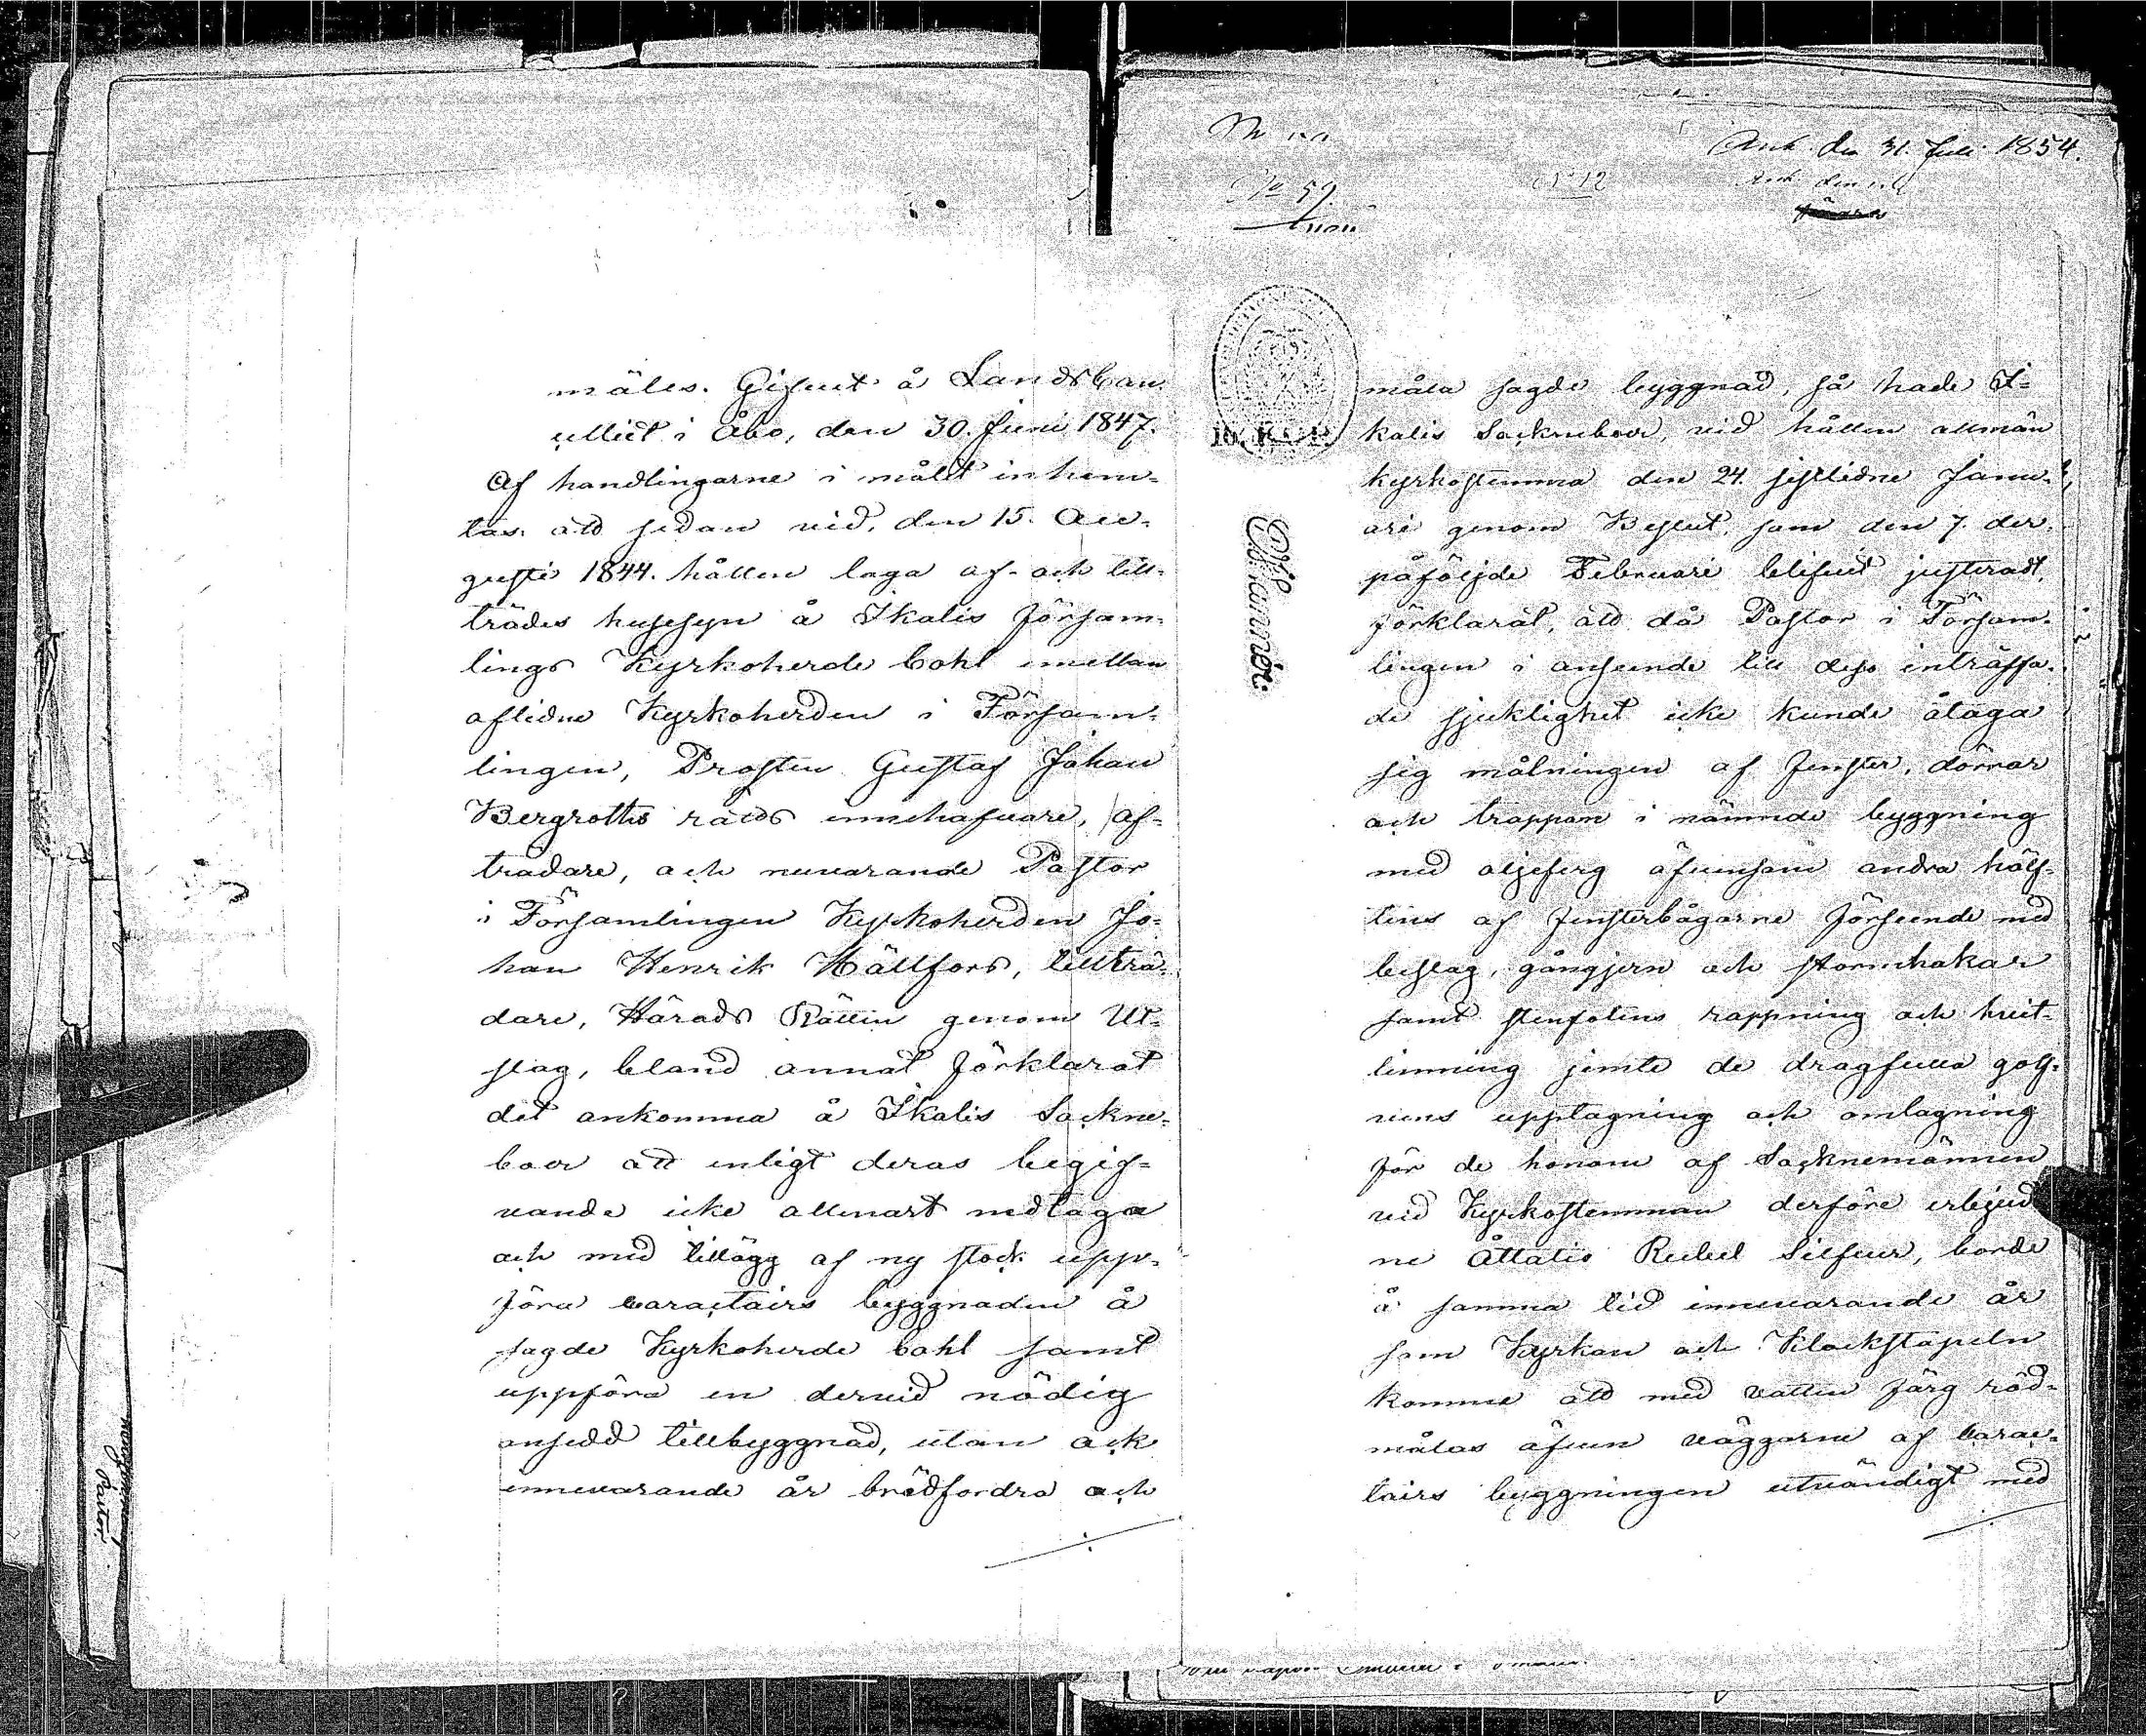 mäles. Gifvet å Landskan
celliet i Åbo, den 30. Juni 1847.
Af handlingarne i målet inhem-
tas. att sedan vid, den 15. Au-
gusti 1844. hållen laga af- och till-
trädes husesyn å Ikalis Försam-
lings Kyrkoherde bohl emellan
aflidne Kyrkoherden i Försam-
lingen, Prosten Gustaf Johan
Bergroths rätts innehafvare, af-
trädare, och nuvarande Pastor
i Församlingen Kyrkoherden Jo-
han Henrik Hällfors, tillträ-
dare, Härads Rätten genom Ut-
slag, bland annat förklarat
det ankomma å Ikalis Sockne-
boer att enligt deras begif-
vande icke allenast nedtaga
och med tillägg af ny stock upp-
föra caractairs byggnaden å
sagde Kyrkoherde bohl samt
uppföra en dervid nödig
ansedd tillbyggnad, utan ock
innevarande år brädfordra och
Ank. den 31. Juli 1854.
No 59.
12
Ank. den
10. KOP.
måla sagde byggnad, så hade I-
kalis Socknebor, vid hållen allmän
kyrkostemma den 24. sistlidne Janu-
ari genom Beslut, som den 7. der-
påföljde Februari blifvit justeradt,
förklarat, att då Pastor i Försam-
lingen i anseende till dess inträffa-
de sjuklighet icke kunde åtaga
sig målningen af fenster, dörrar
och trappan i nämnde byggning
med oljeferg äfvensom andra hälf-
tens af fensterbågarne förseende med
beslag, gångjern och stormhakar
samt stenfotens rappning och hvit-
limning jemte de dragfulla golf-
vens upptagning och omlagning
för de honom af Socknemännen
vid Kyrkostemman derföre erbjud
ne Åttatio Rubel Silfver, borde
å samma tid innevarande år
som Kyrkan och Klockstapeln
komme att med vatten färg röd-
målas äfven väggarne af carac-
tairs byggningen utvändigt med
Pastor